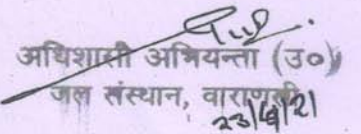 अधिशासी अभियन्ता (उ०)
जल संस्थान, वाराणसी
23/6/21